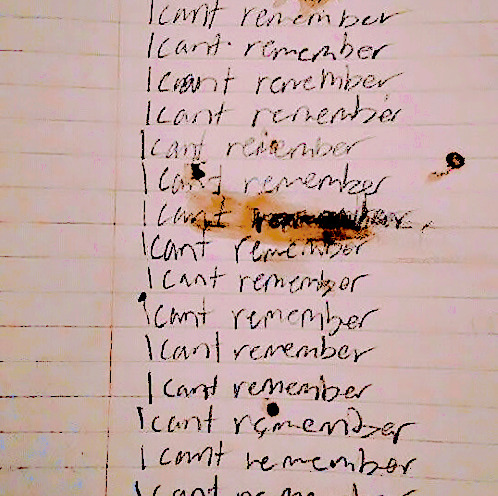 I cant remember
I cant remember
I cant remember
I cant remember
I cant remember
I cant remember
I cant remember
I cant remember
I cant remember
I cant remember
I cant remember
I cant remember
I cant remember
I cant remember
I cant